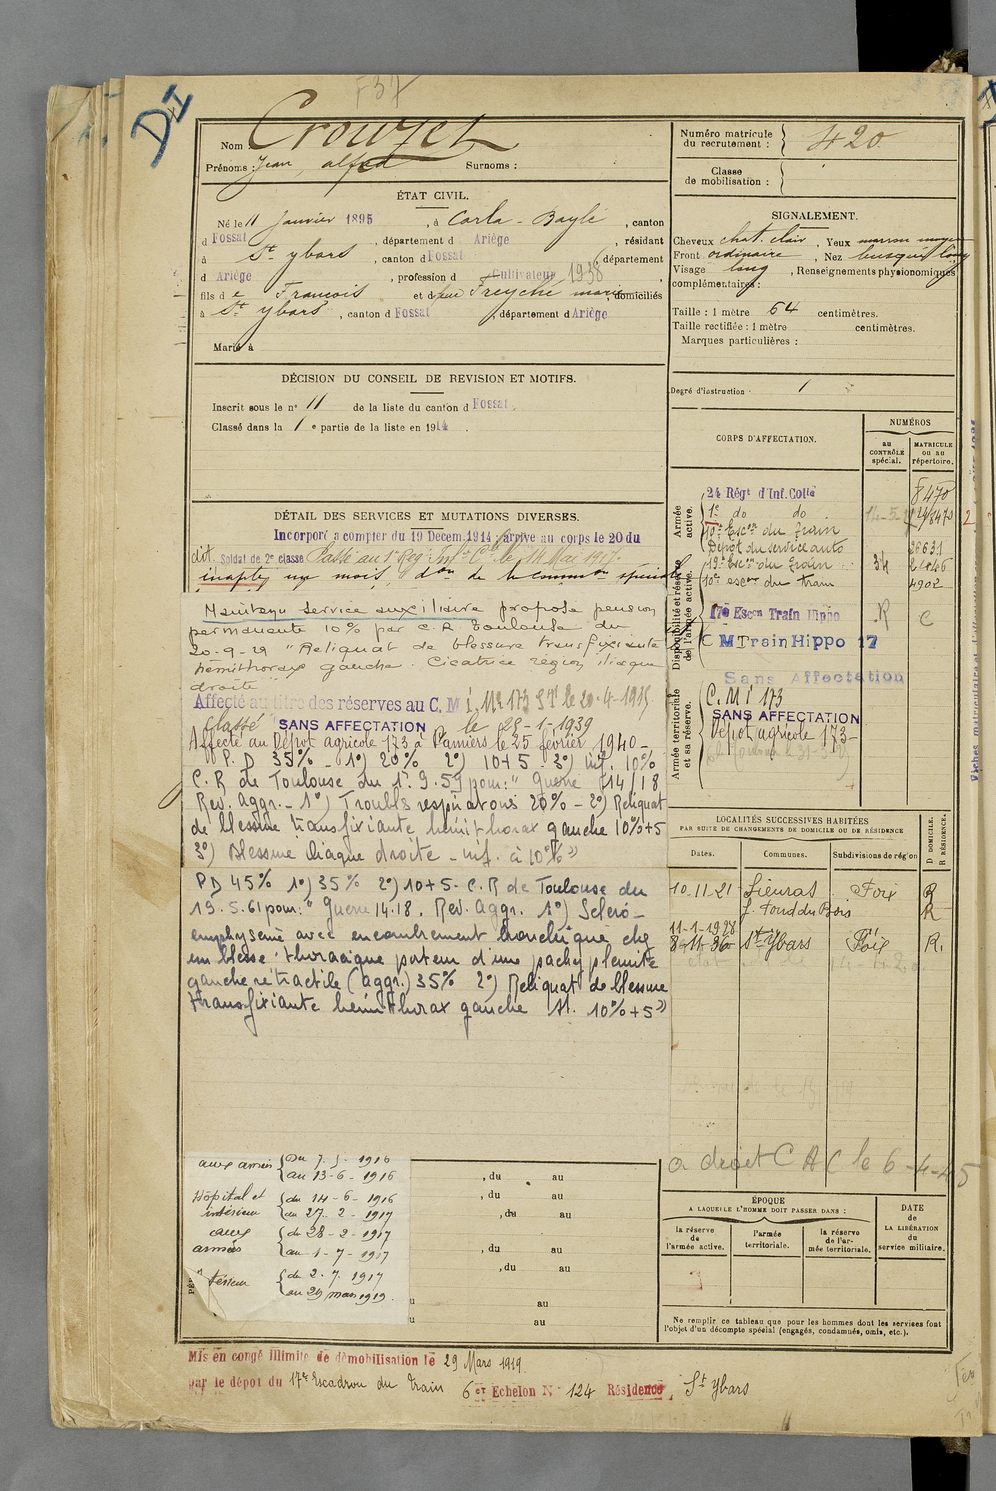 F37
DI
Nom : Crouzet
Prénoms : Jean, alfred Surnoms :
Numéro matricule du recrutement : 420
Classe de mobilisation :
ÉTAT CIVIL.
Né le 11 Janvier 1895, à Carla-Bayle, canton
d Fossat, département d Ariège, résidant
à St ybars, canton d Fossat, département
d Ariège, profession d Cultivateur 1938
fils de François et de feu Freyché marie, domiciliés
à St ybars, canton d Fossat, département d Ariège
Marié à
DÉCISION DU CONSEIL DE REVISION ET MOTIFS.
Inscrit sous le n° 11 de la liste du canton d Fossat.
Classé dans la 1e partie de la liste en 1914.
DÉTAIL DES SERVICES ET MUTATIONS DIVERSES.
Incorporé a compter du 19 Decem. 1914, arrivé au corps le 20 du
dit. Soldat de 2e classe Passé au 1er Rég. Inf. Cle le 14 Mai 1917.
inapte un mois,
Maintenu service auxiliaire propose pension
permanente 10% par C.R Toulouse du
20-9-29 "Reliquat de blessure transfixiante
hémithorax gauche Cicatrice région iliaque
droite"
Affecté au titre des réserves au C. M
Classé SANS AFFECTATION le 28-1-1939
Affecté au Dépot agricole 173 à Pamiers le 25 février 1940-
P. D 35% - 1°) 20% 2°) 10+5 - 3°) inf. 10%
C. R de Toulouse du 1r. 9. 59 pour: " Guerre 14/18
Rev. Aggr. - 1°) Troubles respiratoires 20% - 2°) Reliquat
de blessure transfixiante hémithorax gauche 10%+5
3°) Blessure iliaque droite - inf. à 10% "
PD 45% 1°) 35% 2°) 10+5 - C. R de Toulouse du
19. 5. 61 pour: " Guerre 14-18. Rev. Aggr. 1°) Scléro-
emphysème avec encombrement bronchique chez
un blessé thoracique porteur d'une pachy pleurite
gauche rétractile (aggr.) 35% 2°) Reliquat de blessure
transfixiante hémithorax gauche St. 10%+5 "
aux armées du 7-5-1916
au 13-6-1916
Hôpital et intérieur du 14-6-1916
au 27-2-1917
aux armées du 28-2-1917
au 1-7-1917
du 2-7-1917
au 29 mars 1919.
, du au
, du au
, du au
, du au
, du au
au
au
Mis en congé illimité de démobilisation le 29 Mars 1919
par le dépôt du 17e Escadron du Train 6e Echelon N° 124 Résidence St Ybars
SIGNALEMENT.
Cheveux chat. clair, Yeux marron moyen
Front ordinaire, Nez busqué long
Visage long, Renseignements physionomiques
complémentaires :
Taille : 1 mètre 64 centimètres.
Taille rectifiée : 1 mètre centimètres.
Marques particulières :
Degré d'instruction : 1
CORPS D'AFFECTATION.
NUMÉROS
au CONTRÔLE spécial.
MATRICULE ou au répertoire.
Armée active.
24 Régt d'Inf. Colle 8470
1er do do
Escon du Train
Dépôt du service auto 28631
19e Escon du Train 34
10e escon du train 4902
Disponibilité et réserve de l'armée active.
17e Escon Train Hippo R C
C M Train Hippo 17
Sans Affectation
Armée territoriale et sa réserve.
C. M i 173
SANS AFFECTATION
Dépôt agricole 173-
LOCALITÉS SUCCESSIVES HABITÉES
PAR SUITE DE CHANGEMENTS DE DOMICILE OU DE RÉSIDENCE
Dates. Communes. Subdivisions de région D DOMICILE. R RÉSIDENCE.
10-11-21 Sieuras Foix R
11-1-1928 R
8-11-36 St Ybars Foix R.
a droit C A C le 6-4-45
ÉPOQUE
A LAQUELLE L'HOMME DOIT PASSER DANS :
la réserve de l'armée active.
l'armée territoriale.
la réserve de l'armée territoriale.
DATE de LA LIBÉRATION du service militaire.
Ne remplir ce tableau que pour les hommes dont les services font
l'objet d'un décompte spécial (engagés, condamnés, omis, etc.).